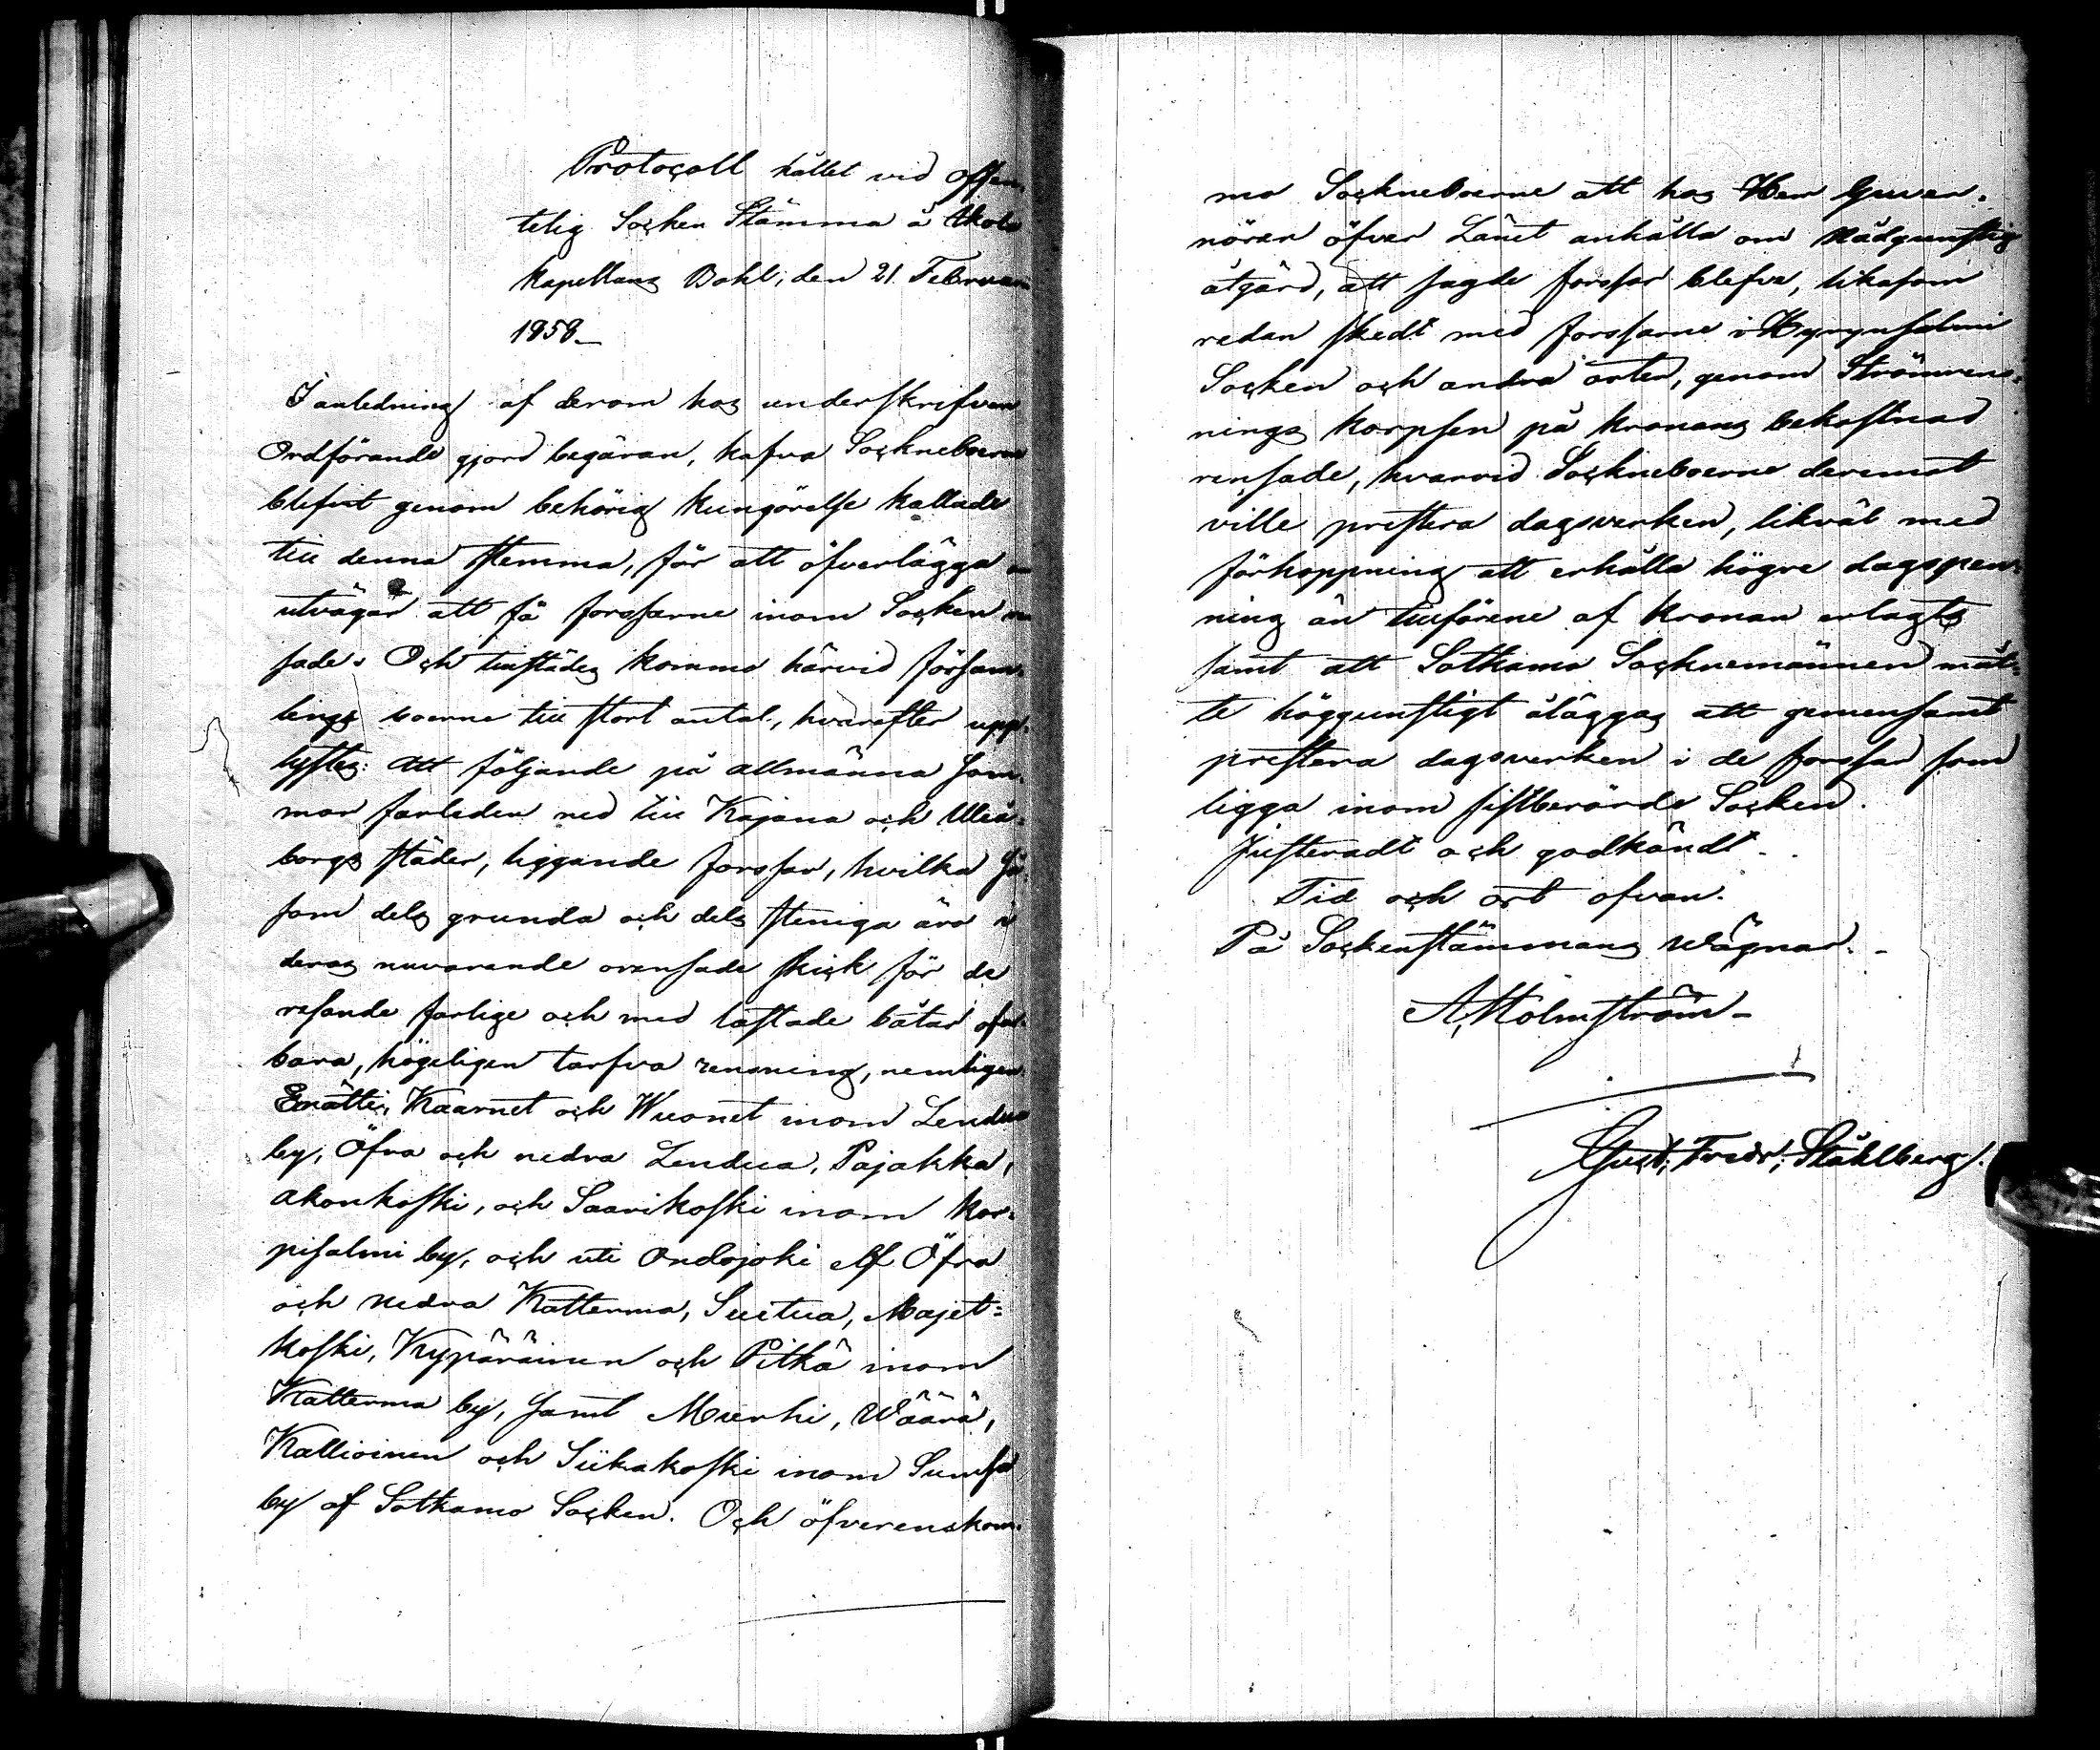 Protocoll hållet vid offen-
telig Socken Stämma å
kapellans Bohl, den 21 Februari
1858_
I anledning af derom hos underskrifven
Ordförande gjord begäran, hafva Sockneboerne
blefvit genom behörig kungörelse kallade
till denna stemma, för att öfverlägga om
utvägar att få forssarne inom Socken ren
sade. Och tillstädes kommo härvid försam-
lings boerne till stort antal, hvarefter upp-
lystes: Att följande på allmänna som-
mar farleden ned till Kajana och Uleå-
borgs städer, liggande forssar, hvilka så
som dels grunda och dels steniga äro i
deras nuvarande orensade skick för de
resande farlige och med lastade båtar ofar-
bara, högeligen tarfva rensning, nemligen
Enätti, Kaarnet och Wuonet inom Lendua
by, Öfra och nedra Lendua, Pajakka,
Akonkoski, och Saarikoski inom Kor-
pisalmi by, och uti Ondojoki elf Öfra
och nedra Katterma, Suitua, Majet=
koski, Kypäräinen och Pitkä inom
Katterma by, samt Murhi, Wäärä,
Kallioinen och Siikakoski inom Sumsa
by af Sotkamo Socken. Och öfverenskom-
mo Sockneboerne att hos Herr Guver-
nören öfver Länet anhålla om nådgunstig
åtgärd, att sagde forssar blefve, likasom
redan skedt med forssarne i Hyrynsalmi
Socken och andra orter, genom Strömrens-
nings korpsen på kronans bekostnad
rensade, hvarvid Sockneboerne deremot
ville prestera dagsverken, likväl med
förhoppning att erhålla högre dagspen-
ning än tillförene af kronan erlagts
samt att Sotkamo Socknemännen måt-
te höggunstigt åläggas att gemensamt
prestera dagsverken i de forssar som
ligga inom sistberörde Socken.
Justeradt och godkändt.
Tid och ort ofvan.
På Sockenstämmans wägnar.
A. Holmström
Gust. Fredr. Ståhlberg.